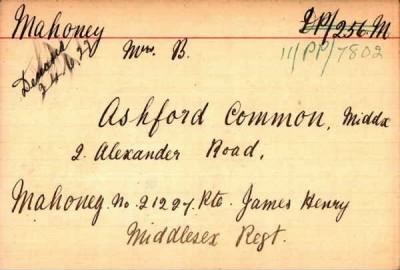 Mahoney
EP/256.M
11/PP/7802
24.6.22
Mrs. B.
Ashford Common, Middx
2. Alexander Road,
Mahoney. No. 21297. Pte. James Henry
Middlesex Regt.